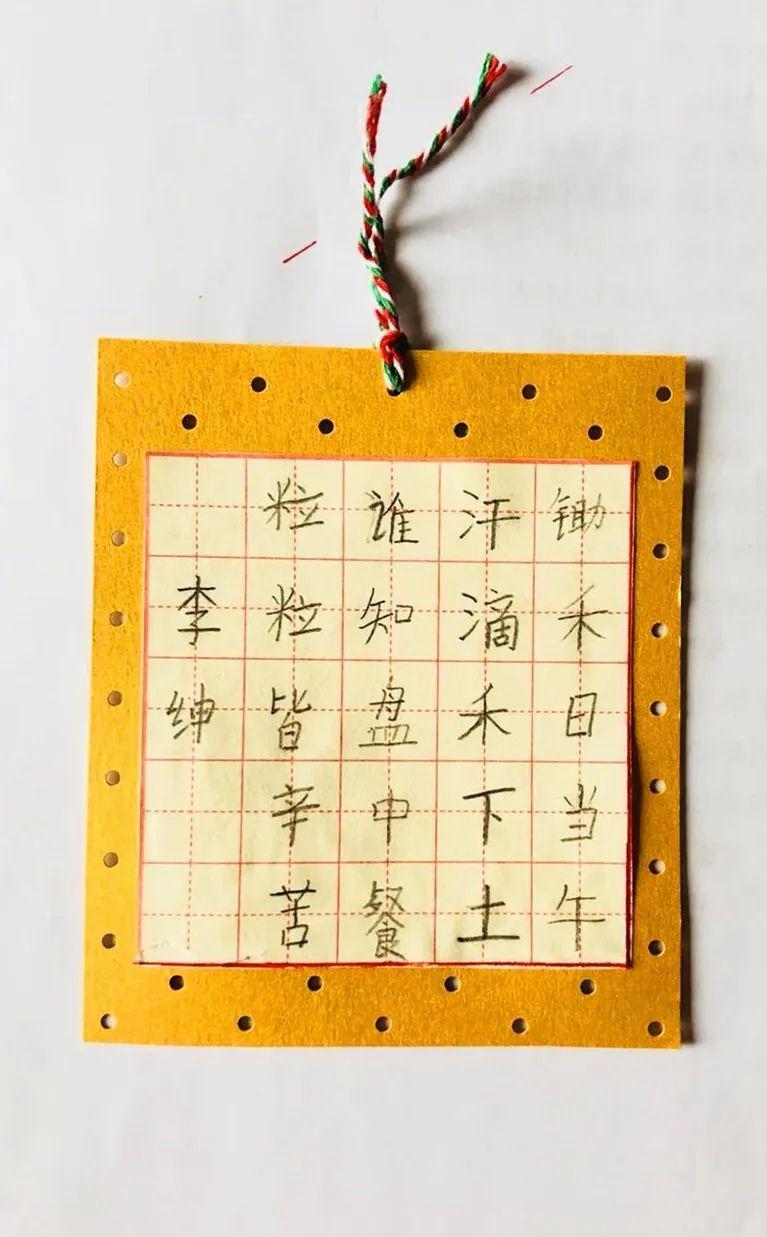 锄禾日当午
汗滴禾下土
谁知盘中餐
粒粒皆辛苦
李绅